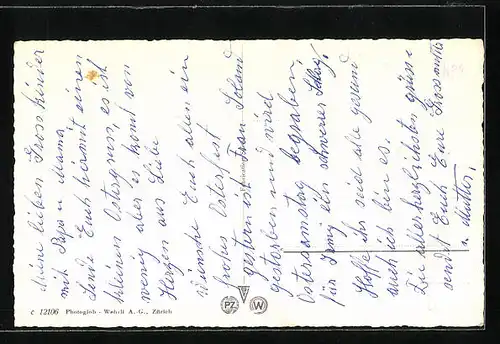 Meine lieben Grosskinder
mit Papa u Mama
Sende Euch hiermit einen
kleinen Ostergruss, es ist
wenig aber es kommt von
Herzen aus Liebe
Wünsche Euch allen ein
frohes Osterfest
gestern ist Frau
gestorben und wird
Ostersamstag begraben,
für ein schwerer Schlag,
Hoffe ihr seid alle gesund
auch ich bin es.
Die allerherzlichsten grüsse
sendet Euch Eure Grossmutter
u Mutter,
C 12106 Photoglob - Wehrli A. G., Zürich
PZ
W